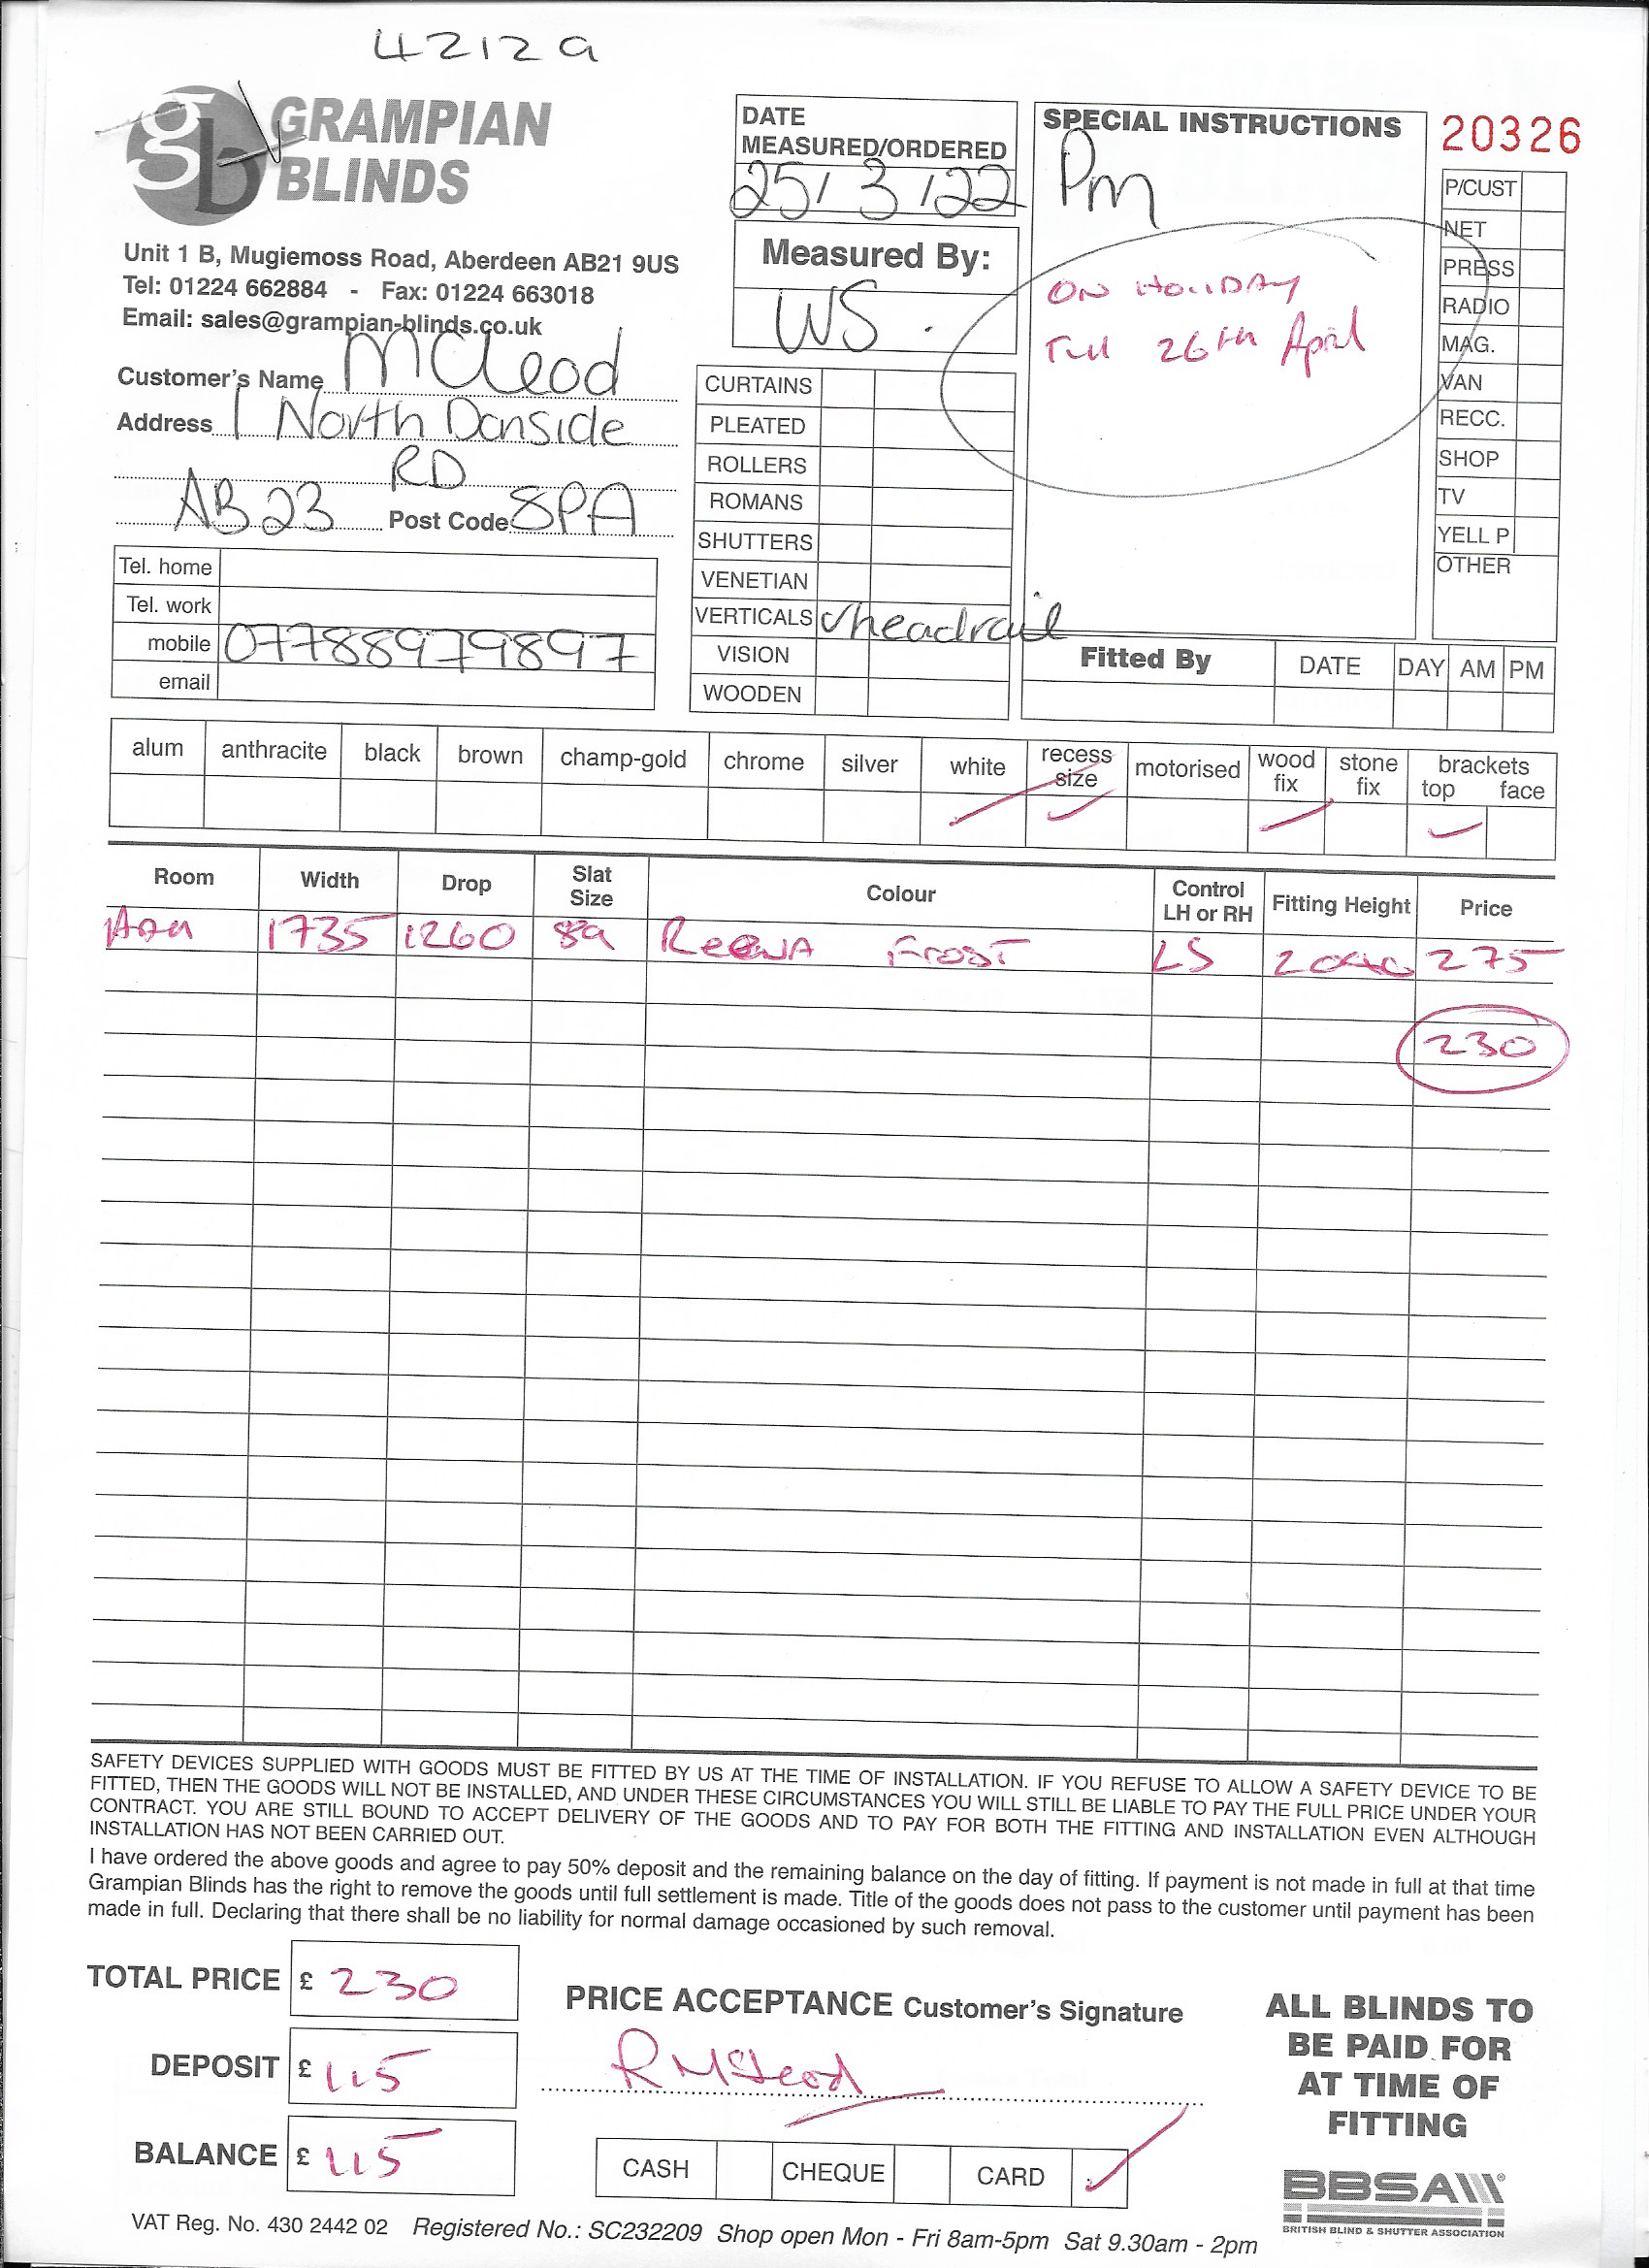 42129
GRAMPIAN
BLINDS
Unit 1 B, Mugiemoss Road, Aberdeen AB21 9US
Tel: 01224 662884 - Fax: 01224 663018
Email: sales@grampian-blinds.co.uk
Customer's Name McLeod
Address 1 North Donside
RD
AB23 Post Code 8PA
Tel. home
Tel. work
mobile 07788979897
email
DATE
MEASURED/ORDERED
25/3/22
Measured By:
WS.
CURTAINS
PLEATED
ROLLERS
ROMANS
SHUTTERS
VENETIAN
VERTICALS ✓ headrail
VISION
WOODEN
SPECIAL INSTRUCTIONS
Pm
ON HOLIDAY
Till 26th April
20326
P/CUST
NET
PRESS
RADIO
MAG.
VAN
RECC.
SHOP
TV
YELL P
OTHER
Fitted By DATE DAY AM PM
alum anthracite black brown champ-gold chrome silver white recess size motorised wood fix stone fix brackets top face
✓ ✓ ✓ ✓
Room Width Drop Slat Size Colour Control LH or RH Fitting Height Price
1735 1260 89 FROST LS 275
230
SAFETY DEVICES SUPPLIED WITH GOODS MUST BE FITTED BY US AT THE TIME OF INSTALLATION. IF YOU REFUSE TO ALLOW A SAFETY DEVICE TO BE
FITTED, THEN THE GOODS WILL NOT BE INSTALLED, AND UNDER THESE CIRCUMSTANCES YOU WILL STILL BE LIABLE TO PAY THE FULL PRICE UNDER YOUR
CONTRACT. YOU ARE STILL BOUND TO ACCEPT DELIVERY OF THE GOODS AND TO PAY FOR BOTH THE FITTING AND INSTALLATION EVEN ALTHOUGH
INSTALLATION HAS NOT BEEN CARRIED OUT.
I have ordered the above goods and agree to pay 50% deposit and the remaining balance on the day of fitting. If payment is not made in full at that time
Grampian Blinds has the right to remove the goods until full settlement is made. Title of the goods does not pass to the customer until payment has been
made in full. Declaring that there shall be no liability for normal damage occasioned by such removal.
TOTAL PRICE £ 230
DEPOSIT £ 115
BALANCE £ 115
PRICE ACCEPTANCE Customer's Signature
R McLeod
CASH CHEQUE CARD ✓
ALL BLINDS TO
BE PAID FOR
AT TIME OF
FITTING
BBSA
BRITISH BLIND & SHUTTER ASSOCIATION
VAT Reg. No. 430 2442 02 Registered No.: SC232209 Shop open Mon - Fri 8am-5pm Sat 9.30am - 2pm